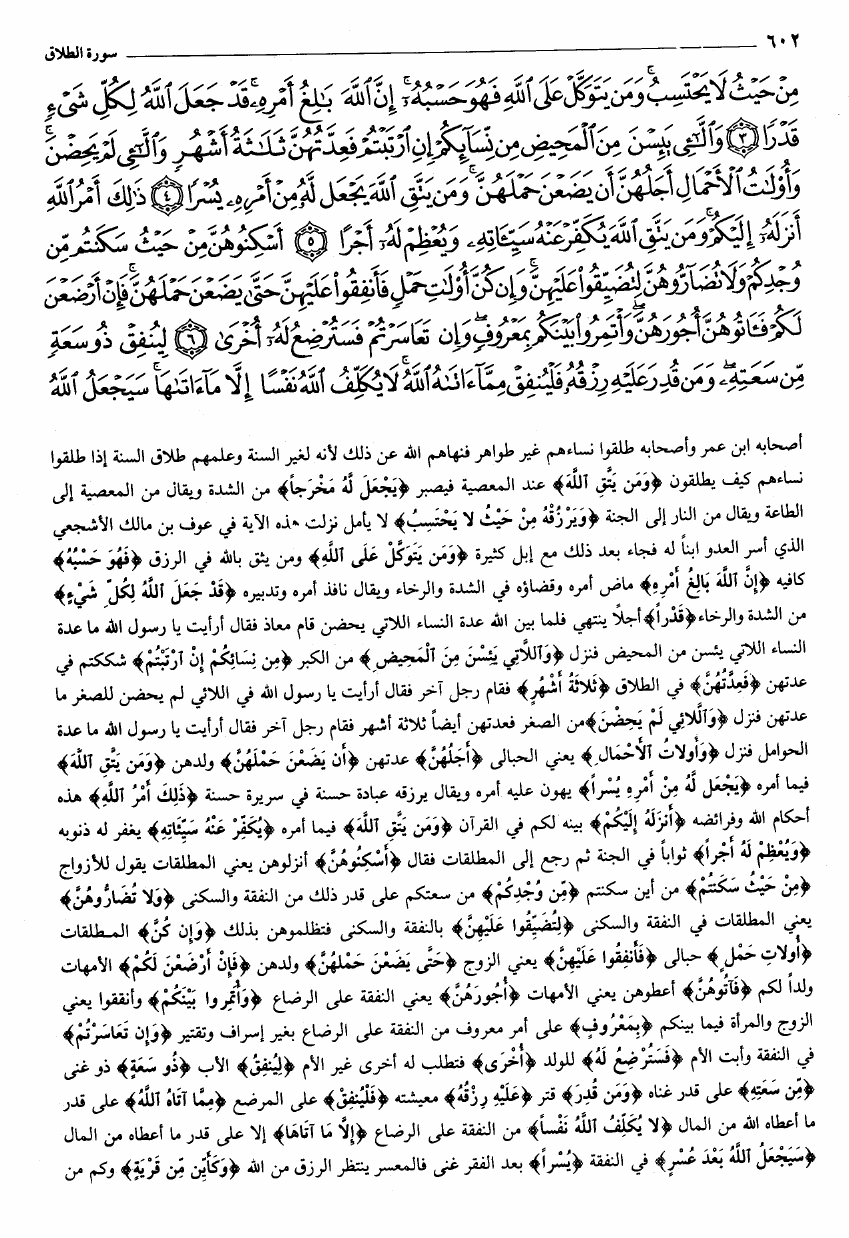 ٦٠٢ سورة الطلاق
مِنْ حَيْثُ لَا يَحْتَسِبُ ۚ وَمَن يَتَوَكَّلْ عَلَى ٱللَّهِ فَهُوَ حَسْبُهُۥٓ ۚ إِنَّ ٱللَّهَ بَٰلِغُ أَمْرِهِۦ ۚ قَدْ جَعَلَ ٱللَّهُ لِكُلِّ شَىْءٍ
قَدْرًا ٣ وَٱلَّٰٓـِٔى يَئِسْنَ مِنَ ٱلْمَحِيضِ مِن نِّسَآئِكُمْ إِنِ ٱرْتَبْتُمْ فَعِدَّتُهُنَّ ثَلَٰثَةُ أَشْهُرٍ وَٱلَّٰٓـِٔى لَمْ يَحِضْنَ ۚ
وَأُو۟لَٰتُ ٱلْأَحْمَالِ أَجَلُهُنَّ أَن يَضَعْنَ حَمْلَهُنَّ ۚ وَمَن يَتَّقِ ٱللَّهَ يَجْعَل لَّهُۥ مِنْ أَمْرِهِۦ يُسْرًا ٤ ذَٰلِكَ أَمْرُ ٱللَّهِ
أَنزَلَهُۥٓ إِلَيْكُمْ ۚ وَمَن يَتَّقِ ٱللَّهَ يُكَفِّرْ عَنْهُ سَيِّـَٔاتِهِۦ وَيُعْظِمْ لَهُۥٓ أَجْرًا ٥ أَسْكِنُوهُنَّ مِنْ حَيْثُ سَكَنتُم مِّن
وُجْدِكُمْ وَلَا تُضَآرُّوهُنَّ لِتُضَيِّقُوا۟ عَلَيْهِنَّ ۚ وَإِن كُنَّ أُو۟لَٰتِ حَمْلٍ فَأَنفِقُوا۟ عَلَيْهِنَّ حَتَّىٰ يَضَعْنَ حَمْلَهُنَّ ۚ فَإِنْ أَرْضَعْنَ
لَكُمْ فَـَٔاتُوهُنَّ أُجُورَهُنَّ ۖ وَأْتَمِرُوا۟ بَيْنَكُم بِمَعْرُوفٍ ۖ وَإِن تَعَاسَرْتُمْ فَسَتُرْضِعُ لَهُۥٓ أُخْرَىٰ ٦ لِيُنفِقْ ذُو سَعَةٍ
مِّن سَعَتِهِۦ ۖ وَمَن قُدِرَ عَلَيْهِ رِزْقُهُۥ فَلْيُنفِقْ مِمَّآ ءَاتَىٰهُ ٱللَّهُ ۚ لَا يُكَلِّفُ ٱللَّهُ نَفْسًا إِلَّا مَآ ءَاتَىٰهَا ۚ سَيَجْعَلُ ٱللَّهُ
أصحابه ابن عمر وأصحابه طلقوا نساءهم غير طواهر فنهاهم الله عن ذلك لأنه لغير السنة وعلمهم طلاق السنة إذا طلقوا
نساءهم كيف يطلقون ﴿وَمَن يَتَّقِ اللَّهَ﴾ عند المعصية فيصبر ﴿يَجْعَلْ لَهُ مَخْرَجاً﴾ من الشدة ويقال من المعصية إلى
الطاعة ويقال من النار إلى الجنة ﴿وَيَرْزُقْهُ مِنْ حَيْثُ لا يَحْتَسِبُ﴾ لا يأمل نزلت هذه الآية في عوف بن مالك الأشجعي
الذي أسر العدو ابناً له فجاء بعد ذلك مع إبل كثيرة ﴿وَمَن يَتَوَكَّلْ عَلَى اللَّهِ﴾ ومن يثق بالله في الرزق ﴿فَهُوَ حَسْبُهُ﴾
كافيه ﴿إِنَّ اللَّهَ بَالِغُ أَمْرِهِ﴾ ماض أمره وقضاؤه في الشدة والرخاء ويقال نافذ أمره وتدبيره ﴿قَدْ جَعَلَ اللَّهُ لِكُلِّ شَيْءٍ﴾
من الشدة والرخاء ﴿قَدْراً﴾ أجلاً ينتهي فلما بين الله عدة النساء اللاتي يحضن قام معاذ فقال أرأيت يا رسول الله ما عدة
النساء اللاتي يئسن من المحيض فنزل ﴿وَاللاَّتِي يَئِسْنَ مِنَ الْمَحِيضِ﴾ من الكبر ﴿مِن نِسَائِكُمْ إِنْ ارْتَبْتُمْ﴾ شككتم في
عدتهن ﴿فَعِدَّتُهُنَّ﴾ في الطلاق ﴿ثَلاثَةُ أَشْهُرٍ﴾ فقام رجل آخر فقال أرأيت يا رسول الله في اللائي لم يحضن للصغر ما
عدتهن فنزل ﴿وَاللاَّئِي لَمْ يَحِضْنَ﴾ من الصغر فعدتهن أيضاً ثلاثة أشهر فقام رجل آخر فقال أرأيت يا رسول الله ما عدة
الحوامل فنزل ﴿وَأُولاتُ الأَحْمَالِ﴾ يعني الحبالى ﴿أَجَلُهُنَّ﴾ عدتهن ﴿أَن يَضَعْنَ حَمْلَهُنَّ﴾ ولدهن ﴿وَمَن يَتَّقِ اللَّهَ﴾
فيما أمره ﴿يَجْعَل لَهُ مِنْ أَمْرِهِ يُسْراً﴾ يهون عليه أمره ويقال يرزقه عبادة حسنة في سريرة حسنة ﴿ذَلِكَ أَمْرُ اللَّهِ﴾ هذه
أحكام الله وفرائضه ﴿أَنزَلَهُ إِلَيْكُمْ﴾ بينه لكم في القرآن ﴿وَمَن يَتَّقِ اللَّهَ﴾ فيما أمره ﴿يُكَفِّرْ عَنْهُ سَيِّئَاتِهِ﴾ يغفر له ذنوبه
﴿وَيُعْظِمْ لَهُ أَجْراً﴾ ثواباً في الجنة ثم رجع إلى المطلقات فقال ﴿أَسْكِنُوهُنَّ﴾ أنزلوهن يعني المطلقات يقول للأزواج
﴿مِنْ حَيْثُ سَكَنتُمْ﴾ من أين سكنتم ﴿مِّن وُجْدِكُمْ﴾ من سعتكم على قدر ذلك من النفقة والسكنى ﴿وَلا تُضَارُّوهُنَّ﴾
يعني المطلقات في النفقة والسكنى ﴿لِتُضَيِّقُوا عَلَيْهِنَّ﴾ بالنفقة والسكنى فتظلموهن بذلك ﴿وَإِن كُنَّ﴾ المطلقات
﴿أُولاتِ حَمْلٍ﴾ حبالى ﴿فَأَنفِقُوا عَلَيْهِنَّ﴾ يعني الزوج ﴿حَتَّى يَضَعْنَ حَمْلَهُنَّ﴾ ولدهن ﴿فَإِنْ أَرْضَعْنَ لَكُمْ﴾ الأمهات
ولداً لكم ﴿فَآتُوهُنَّ﴾ أعطوهن يعني الأمهات ﴿أُجُورَهُنَّ﴾ يعني النفقة على الرضاع ﴿وَأْتَمِروا بَيْنَكُمْ﴾ وأنفقوا يعني
الزوج والمرأة فيما بينكم ﴿بِمَعْرُوفٍ﴾ على أمر معروف من النفقة على الرضاع بغير إسراف وتقتير ﴿وَإِن تَعَاسَرْتُمْ﴾
في النفقة وأبت الأم ﴿فَسَتُرْضِعُ لَهُ﴾ للولد ﴿أُخْرَى﴾ فتطلب له أخرى غير الأم ﴿لِيُنفِقْ﴾ الأب ﴿ذُو سَعَةٍ﴾ ذو غنى
﴿مِّن سَعَتِهِ﴾ على قدر غناه ﴿وَمَن قُدِرَ﴾ قتر ﴿عَلَيْهِ رِزْقُهُ﴾ معيشته ﴿فَلْيُنفِقْ﴾ على المرضع ﴿مِمَّا آتَاهُ اللَّهُ﴾ على قدر
ما أعطاه الله من المال ﴿لا يُكَلِّفُ اللَّهُ نَفْساً﴾ من النفقة على الرضاع ﴿إِلاَّ مَا آتَاهَا﴾ إلا على قدر ما أعطاه من المال
﴿سَيَجْعَلُ اللَّهُ بَعْدَ عُسْرٍ﴾ في النفقة ﴿يُسْراً﴾ بعد الفقر غنى فالمعسر ينتظر الرزق من الله ﴿وَكَأَيِّن مِّن قَرْيَةٍ﴾ وكم من